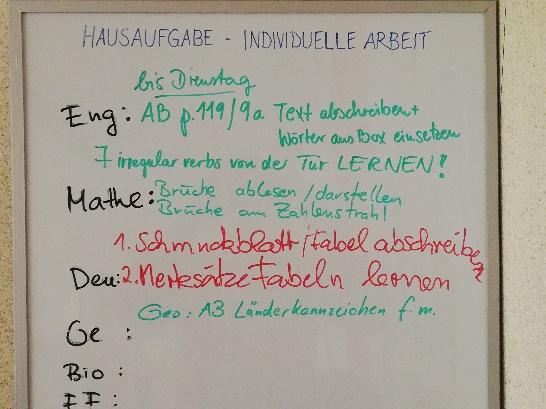 HAUSAUFGABE - INDIVIDUELLE ARBEIT
bis Dienstag
Eng: AB p.119/9a Text abschreiben +
Wörter aus Box einsetzen
7 irregular verbs von der Tür LERNEN!
Mathe: Brüche ablesen/darstellen
Brüche am Zahlenstrahl
1. Schmuckblatt/Fabel abschreiben
Deu: 2. Merksätze Fabeln lernen
Geo: AB Länderkennzeichen f.m.
Ge :
Bio :